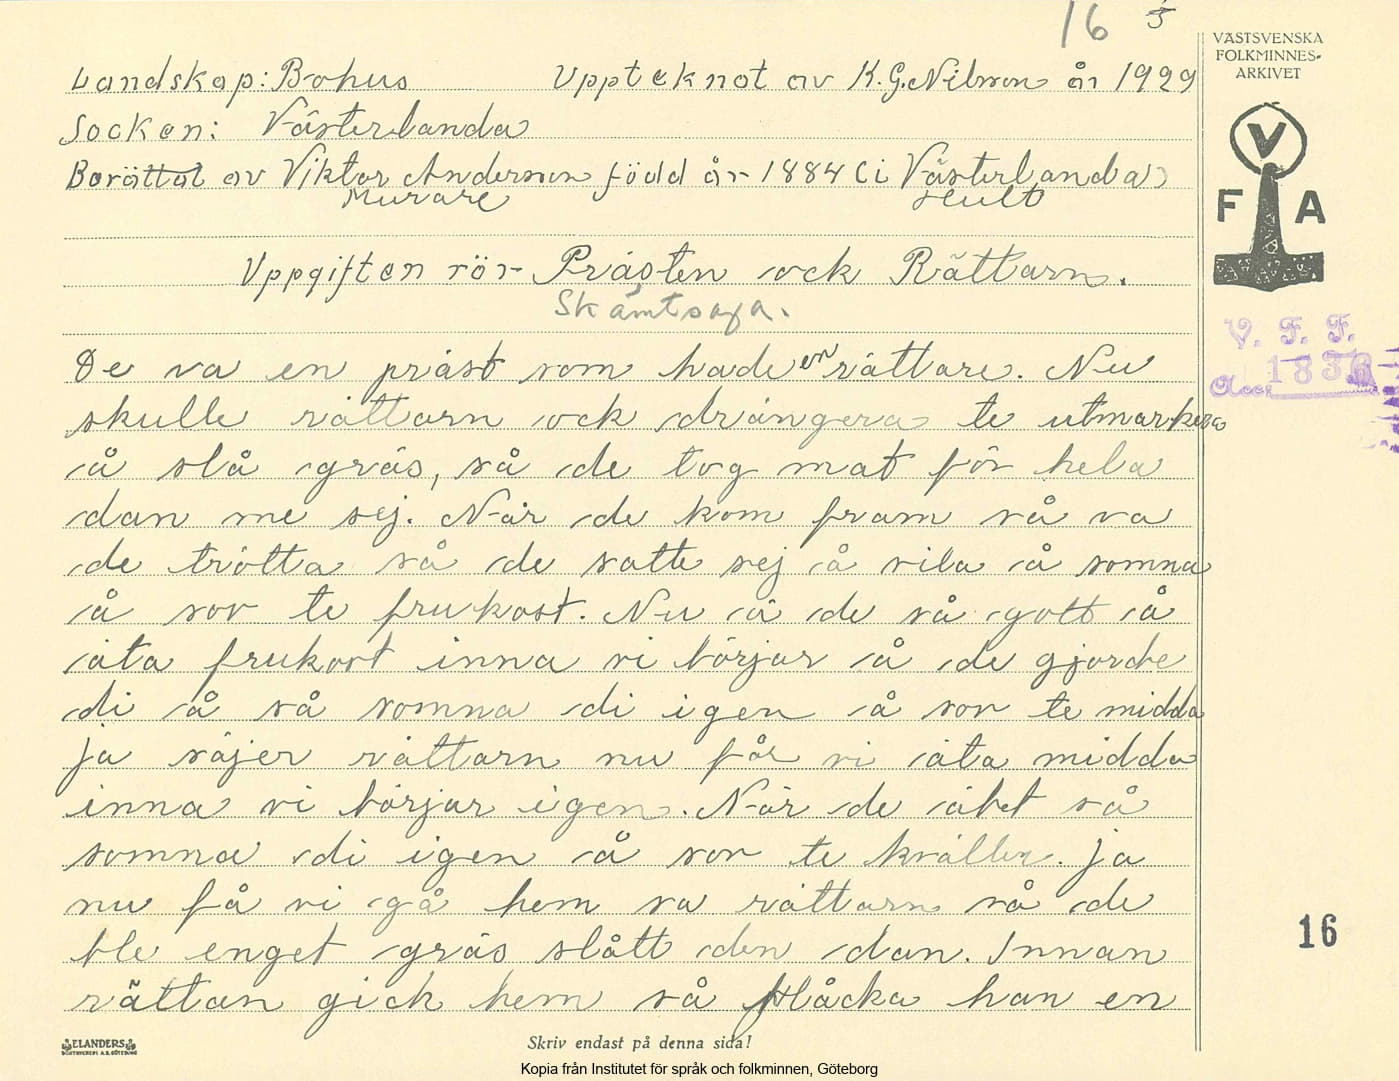 16 5
VÄSTSVENSKA
FOLKMINNES-
ARKIVET
Landskap: Bohus Upptecknat av K.G. Nilsson år 1929
Socken: Västerlanda
Berättat av Viktor Anderson född år 1884 (i Västerlanda)
Murare Hult
V
F A
Uppgiften rör Prästen ock Rättarn.
Skämtsaga.
V. F. F.
Acc: 1836
De va en präst som hade en rättare. Nu
skulle rättarn ock drängera te utmarkera
å slå gräs, så de tog mat för hela
dan me sej. När de kom fram så va
de trötta så de satte sej å vila å somna
å sov te frukost. Nu ä de så gott å
äta frukost inna vi börjar å de gjorde
di å så somna di igen å sov te midda
ja säjer rättarn nu får vi äta midda
inna vi börjar igen. När de ätet så
somna di igen å sov te kvällen. ja
nu få vi gå hem sa rättarn så de
ble enget gräs slått den dan. Innan
rättan gick hem så plåcka han en
16
ELANDERS
Skriv endast på denna sida!
Kopia från Institutet för språk och folkminnen, Göteborg